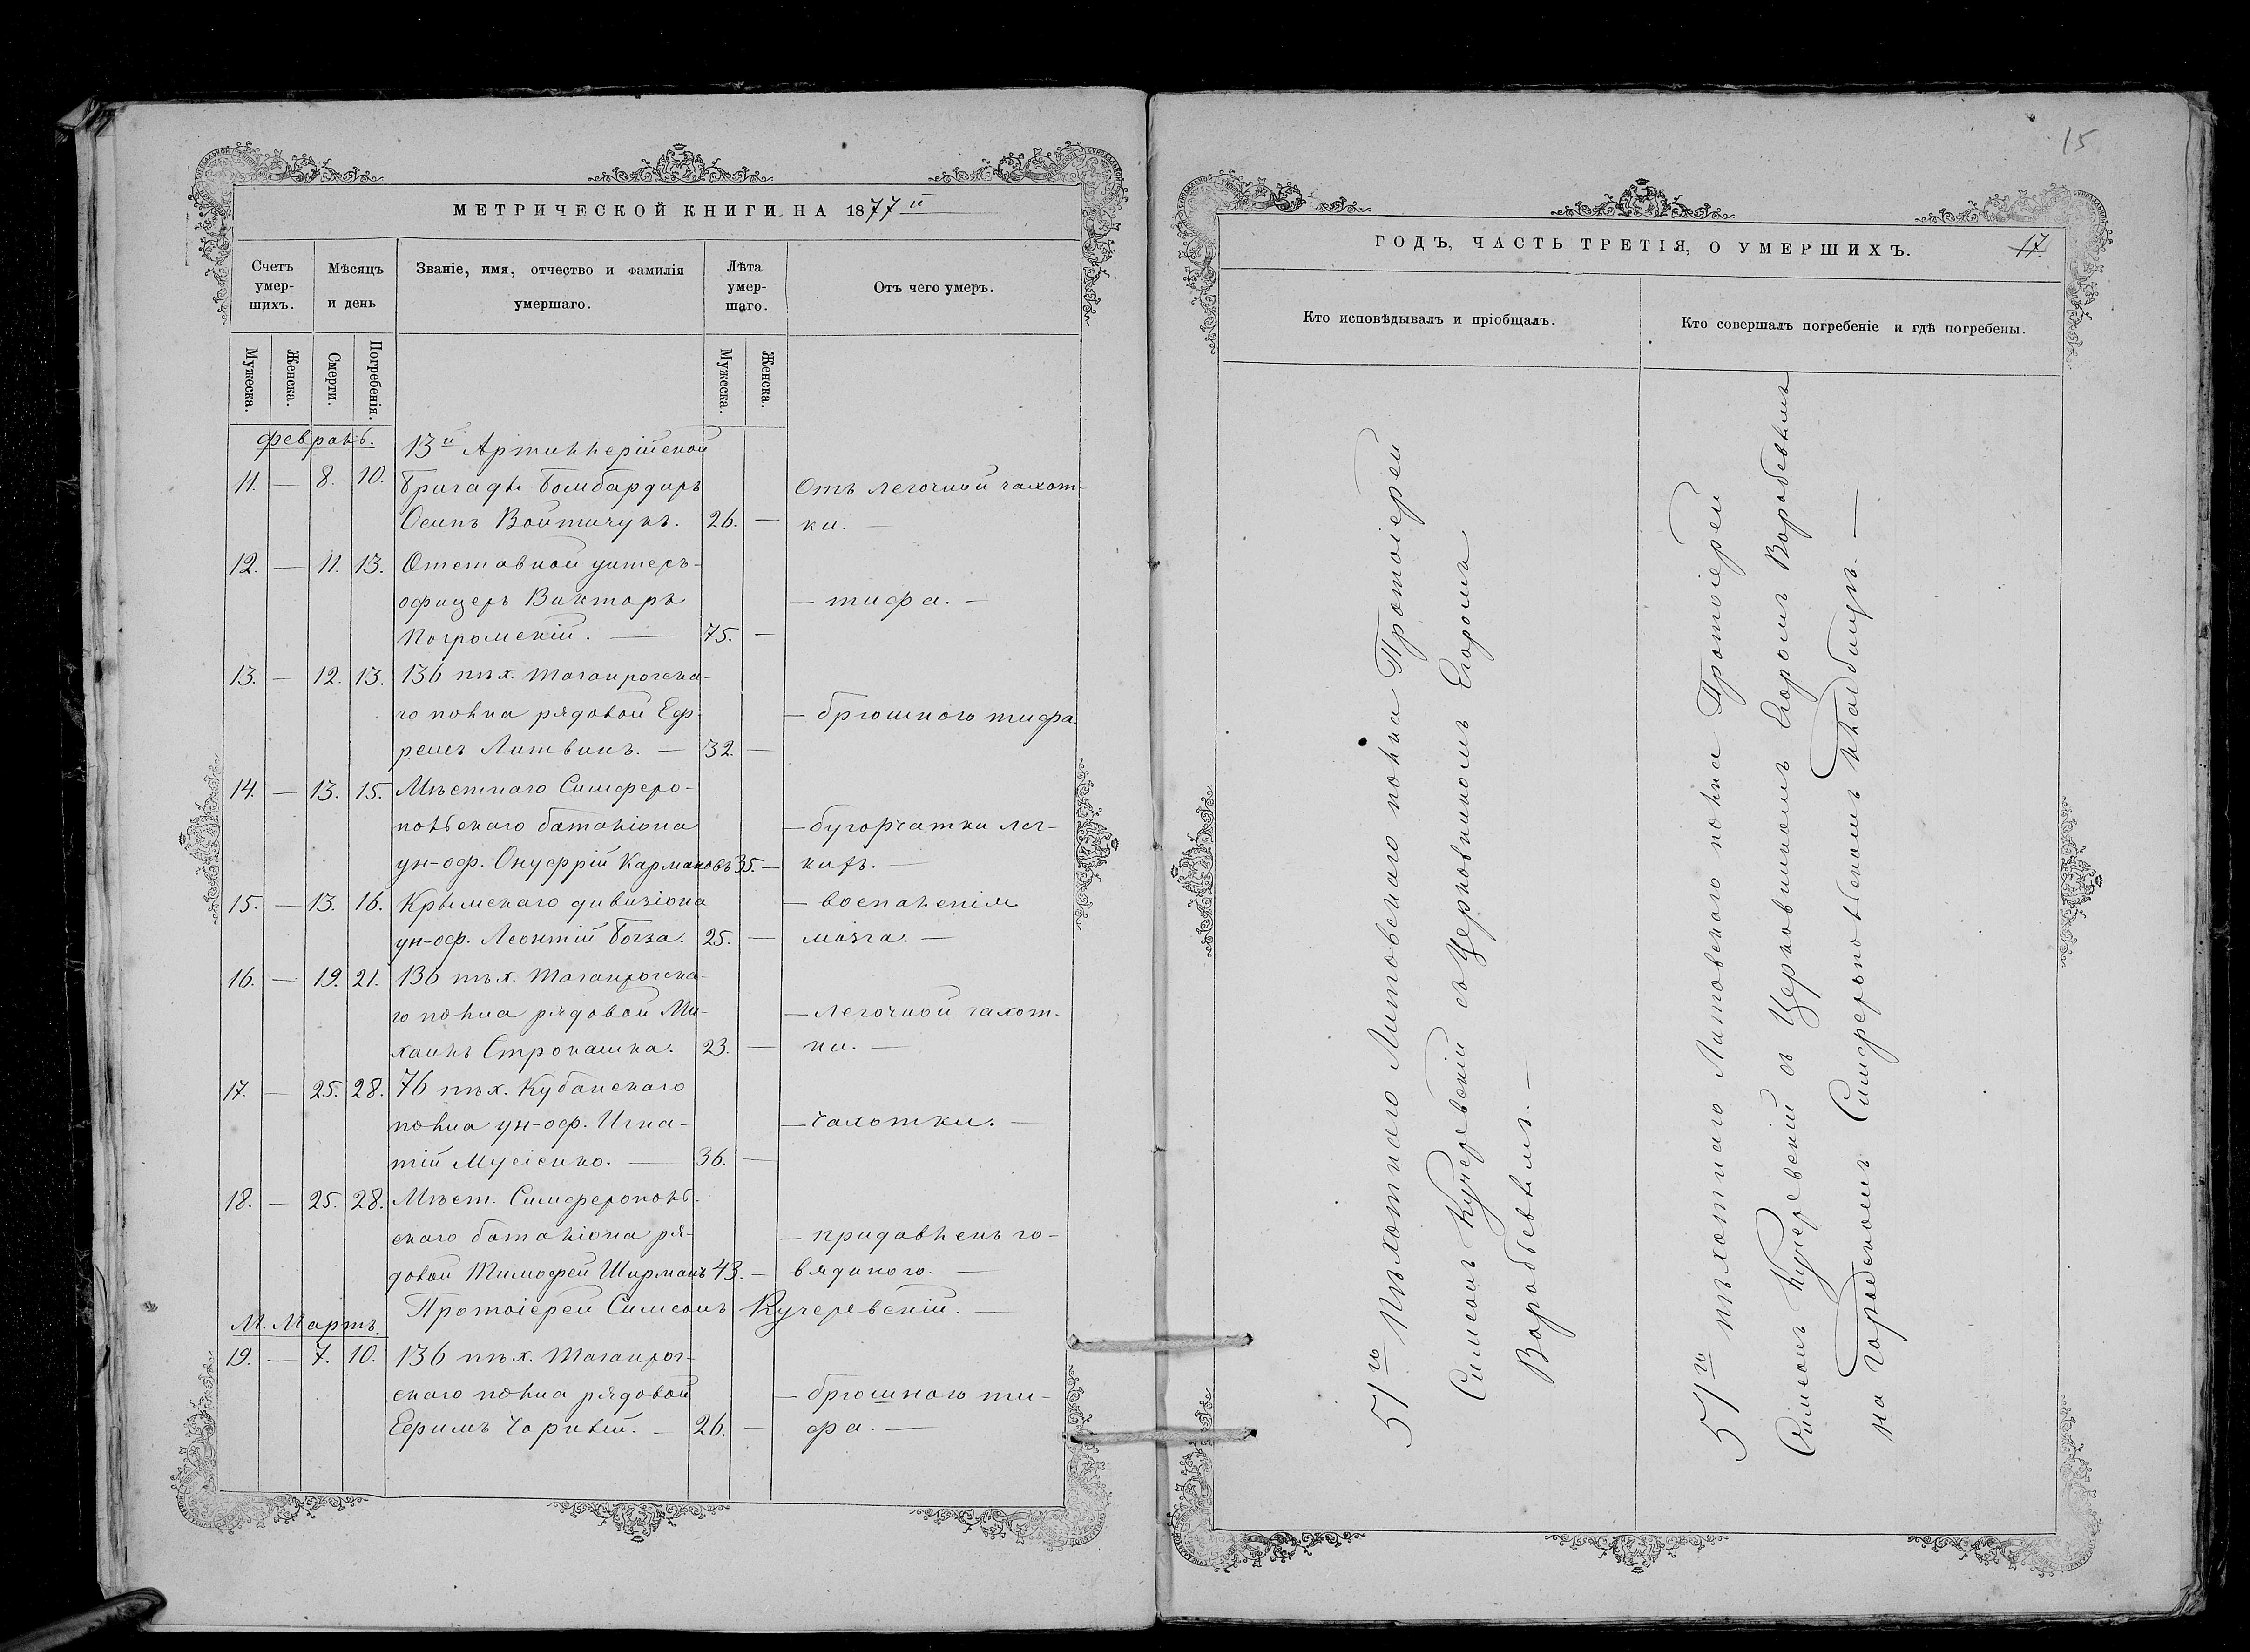 МЕТРИЧЕСКОЙ КНИГИ НА 1877й
Счетъ умер-шихъ.
Мѣсяцъ и день
Званіе, имя, отчество и фамилія умершаго.
Лѣта умер-шаго.
Отъ чего умеръ.
Мужеска.
Женска.
Смерти.
Погребенія.
Мужеска.
Женска.
февраль.
13й Артиллерійской
11. — 8. 10. Бригады Бомбардиръ Отъ легочной чахот-
Осипъ Войтичукъ. 26. — ки. —
12. — 11. 13. Отставной унтеръ-
офицеръ Викторъ — тифа. —
Погромскій. — 75. —
13. — 12. 13. 136 пѣх. Таганрогска-
го полка рядовой Еф- — брюшного тифа.
ремъ Литвинъ. — 32. —
14. — 13. 15. Мѣстнаго Симферо-
польскаго баталіона — бугорчатки лег-
ун-оф. Онуфрій Кармановъ 35. — кихъ. —
15. — 13. 16. Крымскаго дивизіона — воспаленія
ун-оф. Леонтій Богза. 25. — мозга. —
16. — 19. 21. 136 пѣх. Таганрогска-
го полка рядовой Ми- — легочной чахот-
хаилъ Строкашка. 23. — ки. —
17. — 25. 28. 76 пѣх. Кубанскаго
полка ун-оф. Игна- — чахотки. —
тій Мусіенко. — 36. —
18. — 25. 28. Мѣст. Симферополь-
скаго баталіона ря- — придавленъ го-
довой Тимофей Ширманъ 43. — вядиною. —
Протоіерей Симеонъ Кучеревскій. —
М. Мартъ.
19. — 7. 10. 136 пѣх. Таганрог-
скаго полка рядовой — брюшного ти-
Ефимъ 26. — фа. —
15
ГОДЪ, ЧАСТЬ ТРЕТІЯ, О УМЕРШИХЪ.
17.
Кто исповѣдывалъ и пріобщалъ.
Кто совершалъ погребеніе и гдѣ погребены.
51го Пѣхотнаго Литовскаго полка Протоіерей
Симеонъ Кучеревскій съ Церковникомъ Егоромъ
Воробьевымъ. —
51го пѣхотнаго Литовскаго полка Протоіерей
Симеонъ Кучеревскій съ Церковникомъ Егоромъ Воробьевымъ
на городскомъ Симферопольскомъ кладбищѣ. —